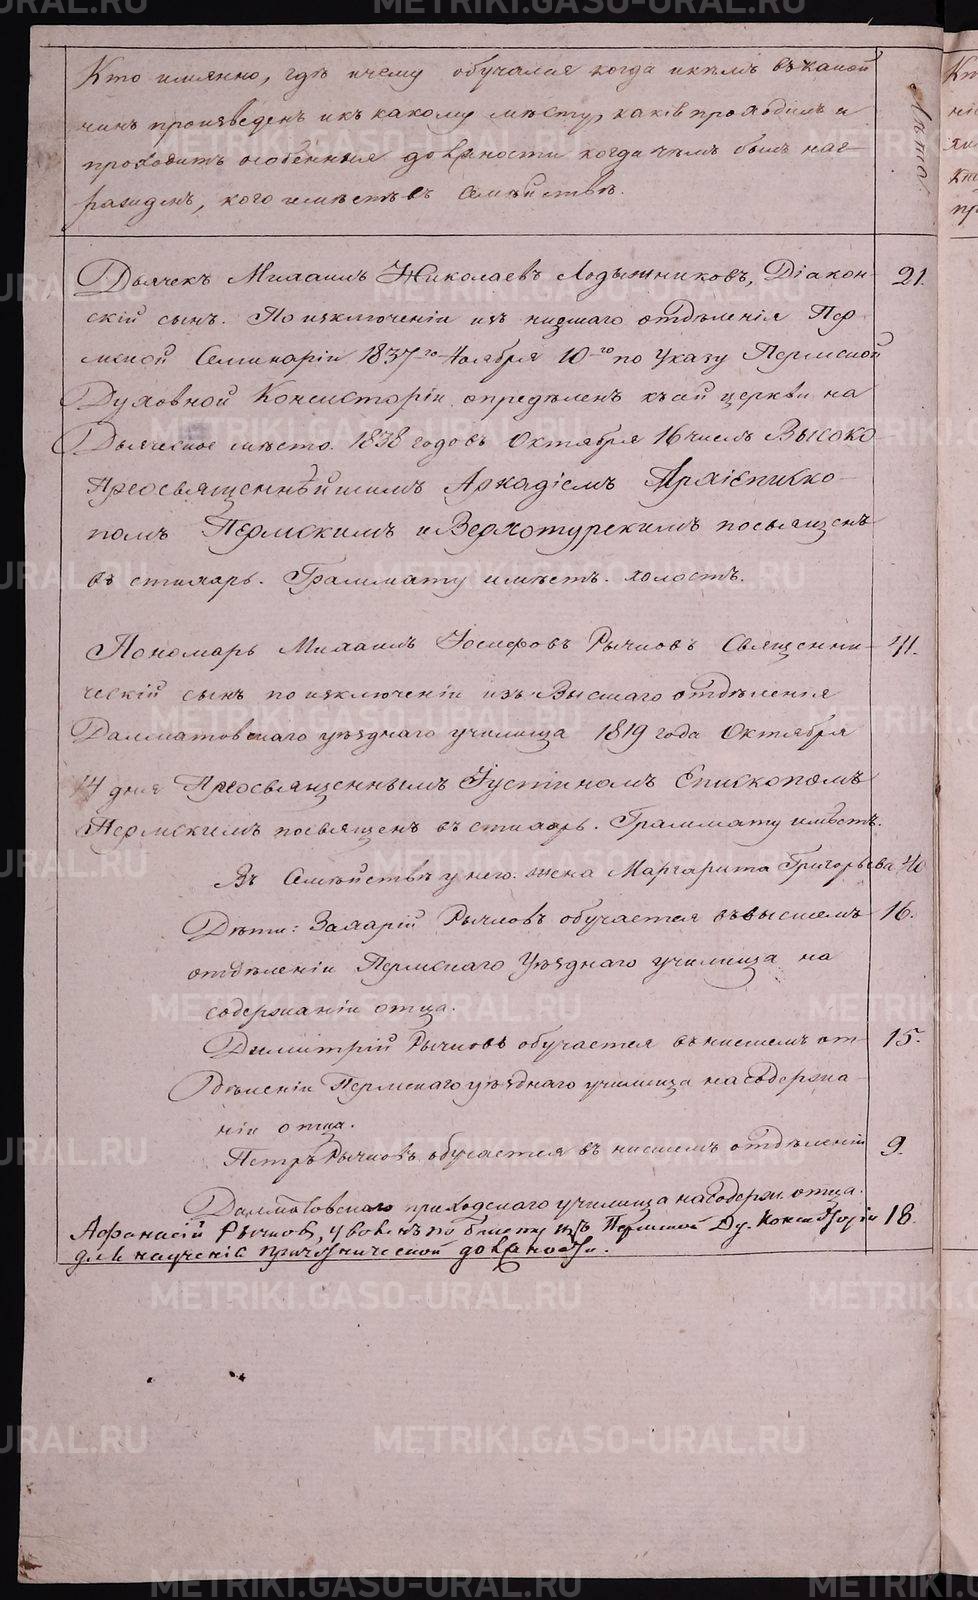 Кто имянно, гдѣ и чему обучался когда и кѣмъ въ какой
чинъ произведенъ и къ какому мѣсту, какія проходилъ и
проходитъ особенныя должности когда чѣмъ былъ наг-
ражденъ, кого имѣетъ въ Семѣйствѣ.
Лѣта.
Дьячекъ Михаилъ Николаевъ Лодыжниковъ, Діакон- 21.
скій сынъ. По изключеніи изъ низшаго отдѣленія Пер
мской Семинаріи 1837го Ноября 10го по Указу Пермской
Духовной Консисторіи опредѣленъ къ сей церкви на
Дьяческое мѣсто. 1838 года въ Октября 16 числѣ Высоко
Преосвященнѣйшимъ Аркадіемъ Архіеписко-
помъ Пермскимъ и Верхотурскимъ посвященъ
въ стихарь. Граммату имѣетъ. холостъ.
Пономарь Михаилъ Іосифовъ Рычковъ Священни- 41.
ческій сынъ по изключеніи изъ Высшаго отдѣленія
Далматовскаго уѣзднаго училища 1819 года Октября
14 дня Преосвященнымъ Іустіномъ Епископомъ
Пермскимъ посвященъ въ стихарь. Граммату имѣетъ.
Въ Семѣйствѣ у него: жена Маргарита Григорьева 40
Дѣти: Захарій Рычковъ обучается въ высшемъ 16.
отдѣленіи Пермскаго Уѣзднаго училища на
содержаніи отца.
Димитрій Рычковъ обучается въ нисшемъ от- 15.
дѣленіи Пермскаго уѣзднаго училища на содержа-
ніи отца.
Петръ Рычковъ обучается въ нисшемъ отдѣленіи 9.
Далматовскаго приходскаго училища на содерж. отца.
Афанасій Рычков, уволенъ по билету изъ Пермской Ду. Консисторіи 18
для наученія причетнической должности.
METRIKI.GASO-URAL.RU